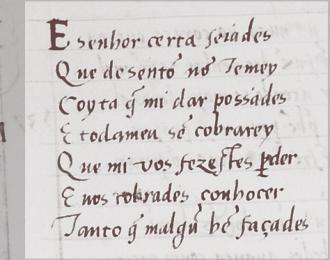 E senhor certa seiades
Que desentõ nõ Temey
Coyta q̃ mi dar possades
E todameu sẽ cobrarey
Que mi vos fezestes ꝑder
E uos cobrades conhocer
Tanto q̃ malgũ bẽ façades